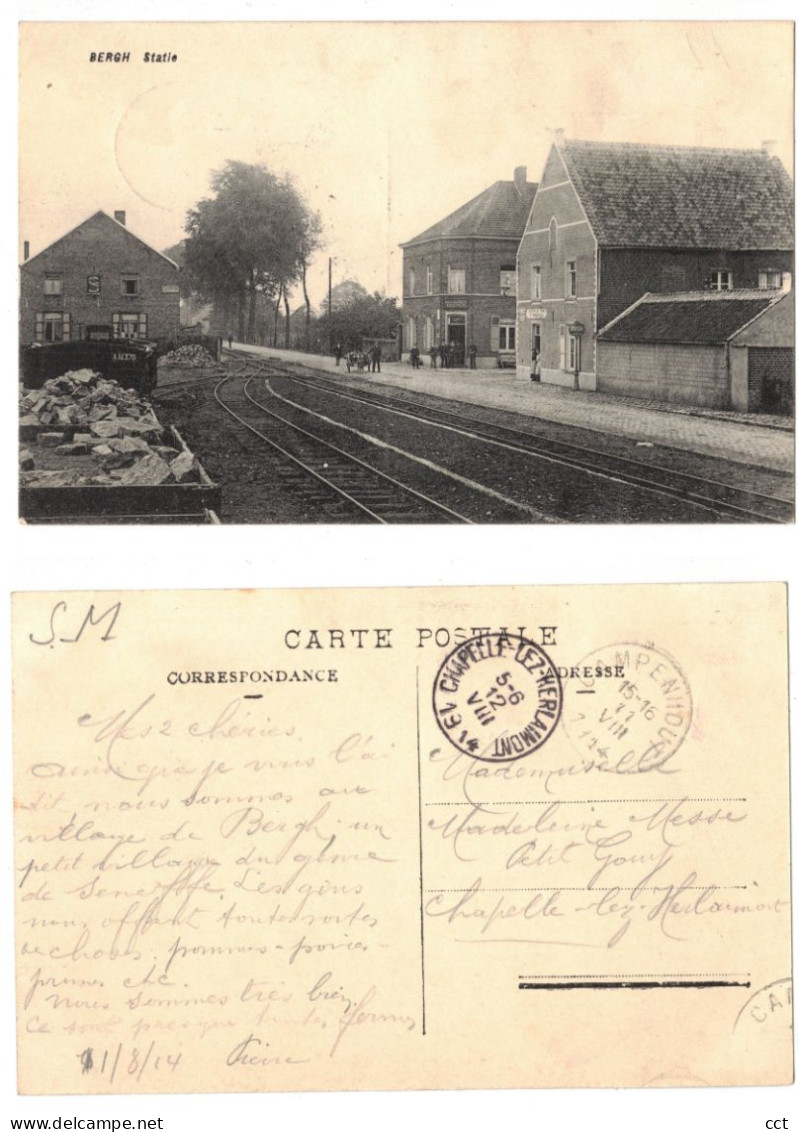 BERGH Statie
S.M
CARTE POSTALE
CORRESPONDANCE
ADRESSE
CHAPELLE-LEZ-HERLAIMONT
5-6
12
VIII
14
CAMPENHOUT
15-16
11
VIII
1914
Mes 2 chéries.
Ainsi que je vous l'ai
dit, nous sommes au
village de Bergh; un
petit village du genre
de Seneffe. Les gens
nous offrent toutes sortes
de choses. pommes - poires -
prunes etc.
Nous sommes très bien,
Ce sont presque toutes fermes
11/8/14
Mademoiselle
Madeleine Messe
Petit Gouy
Chapelle-lez-Herlaimont
CA
www.delcampe.net
cct